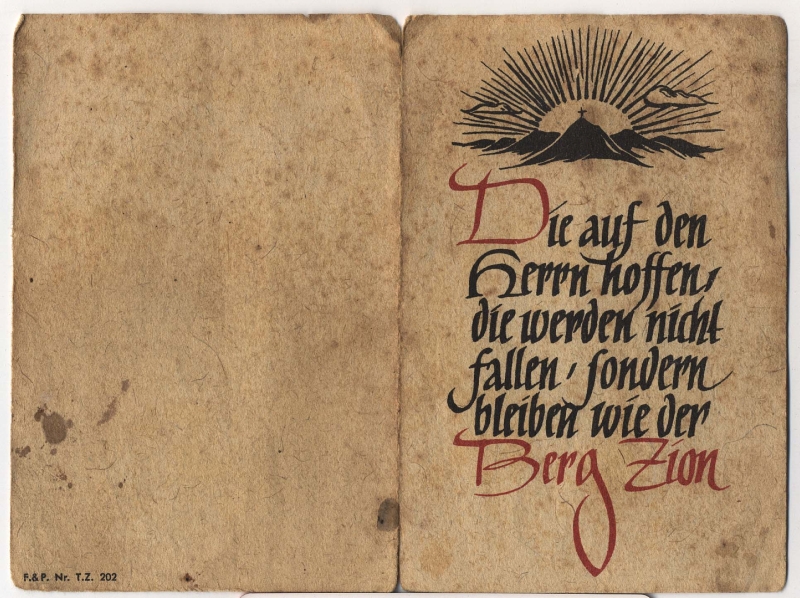 F.&P. Nr. T.Z. 202
Die auf den
Herrn hoffen,
die werden nicht
fallen, sondern
bleiben wie der
Berg Zion